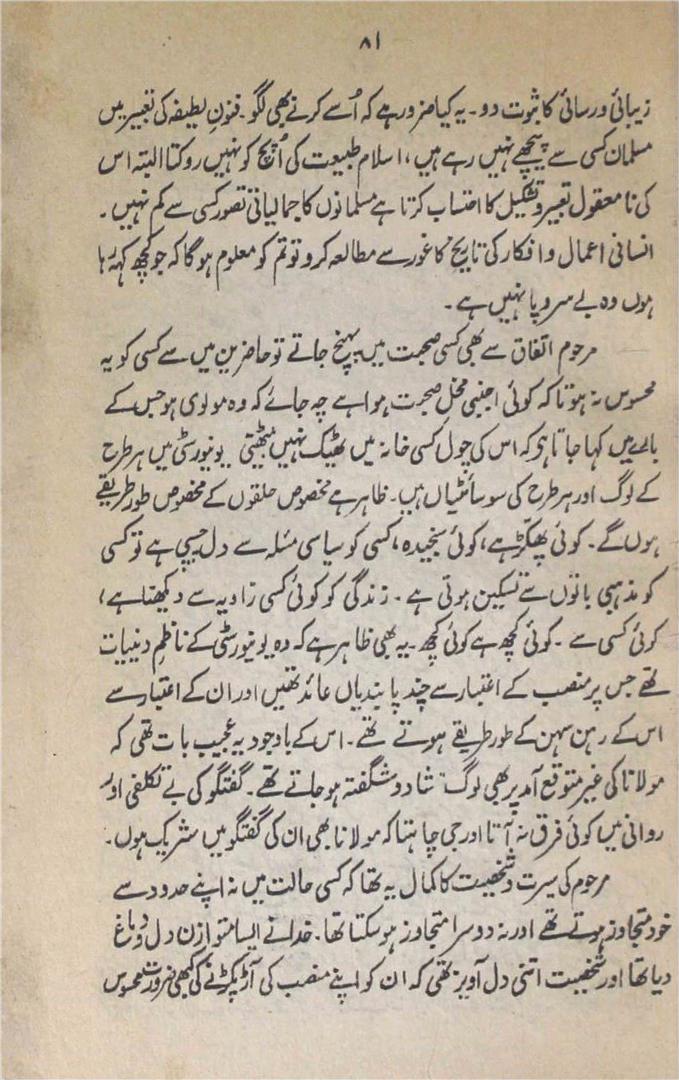 ۸۱
زیبائی ورسائی کا ثبوت دو۔ یہ کیا ضرور ہے کہ اُسے کرنے بھی لگو۔ فنونِ لطیفہ کی تعبیر میں
مسلمان کسی سے پیچھے نہیں رہے ہیں، اسلام طبیعت کی اُپج کو نہیں روکتا البتہ اس
کی نامعقول تعبیر و تشکیل کا احتساب کرتا ہے مسلمانوں کا جمالیاتی تصور کسی سے کم نہیں۔
انسانی اعمال و افکار کی تاریخ کا غور سے مطالعہ کرو تو تم کو معلوم ہوگا کہ جو کچھ کہہ رہا
ہوں وہ بے سروپا نہیں ہے۔
مرحوم اتفاق سے بھی کسی صحبت میں پہنچ جاتے تو حاضرین میں سے کسی کو یہ
محسوس نہ ہوتا کہ کوئی اجنبی مخل صحبت ہوا ہے چہ جائے کہ وہ مولوی ہو جس کے
بارے میں کہا جاتا ہو کہ اس کی چول کسی خانہ میں ٹھیک نہیں بیٹھتی یونیورسٹی میں ہر طرح
کے لوگ اور ہر طرح کی سوسائٹیاں ہیں۔ ظاہر ہے مخصوص حلقوں کے مخصوص طور طریقے
ہوں گے۔ کوئی پھکڑ ہے، کوئی سنجیدہ، کسی کو سیاسی مسئلہ سے دل چسپی ہے تو کسی
کو مذہبی باتوں سے تسکین ہوتی ہے۔ زندگی کو کوئی کسی زاویہ سے دیکھتا ہے،
کوئی کسی سے۔ کوئی کچھ ہے کوئی کچھ۔ یہ بھی ظاہر ہے کہ وہ یونیورسٹی کے ناظمِ دینیات
تھے جس پر منصب کے اعتبار سے چند پابندیاں عائد تھیں اور ان کے اعتبار سے
اس کے رہن سہن کے طور طریقے ہوتے تھے۔ اس کے باوجود یہ عجیب بات تھی کہ
مولانا کی غیر متوقع آمد پر بھی لوگ شاد و شگفتہ ہوجاتے تھے۔ گفتگو کی بے تکلفی اور
روانی میں کوئی فرق نہ آتا اور جی چاہتا کہ مولانا بھی ان کی گفتگو میں شریک ہوں۔
مرحوم کی سیرت و شخصیت کا کمال یہ تھا کہ کسی حالت میں نہ اپنے حدود سے
خود متجاوز ہوتے تھے اور نہ دوسرا متجاوز ہوسکتا تھا۔ خدا نے ایسا متوازن دل و دماغ
دیا تھا اور شخصیت اتنی دل آویز تھی کہ ان کو اپنے منصب کی آڑ پکڑنے کی کبھی ضرورت محسوس